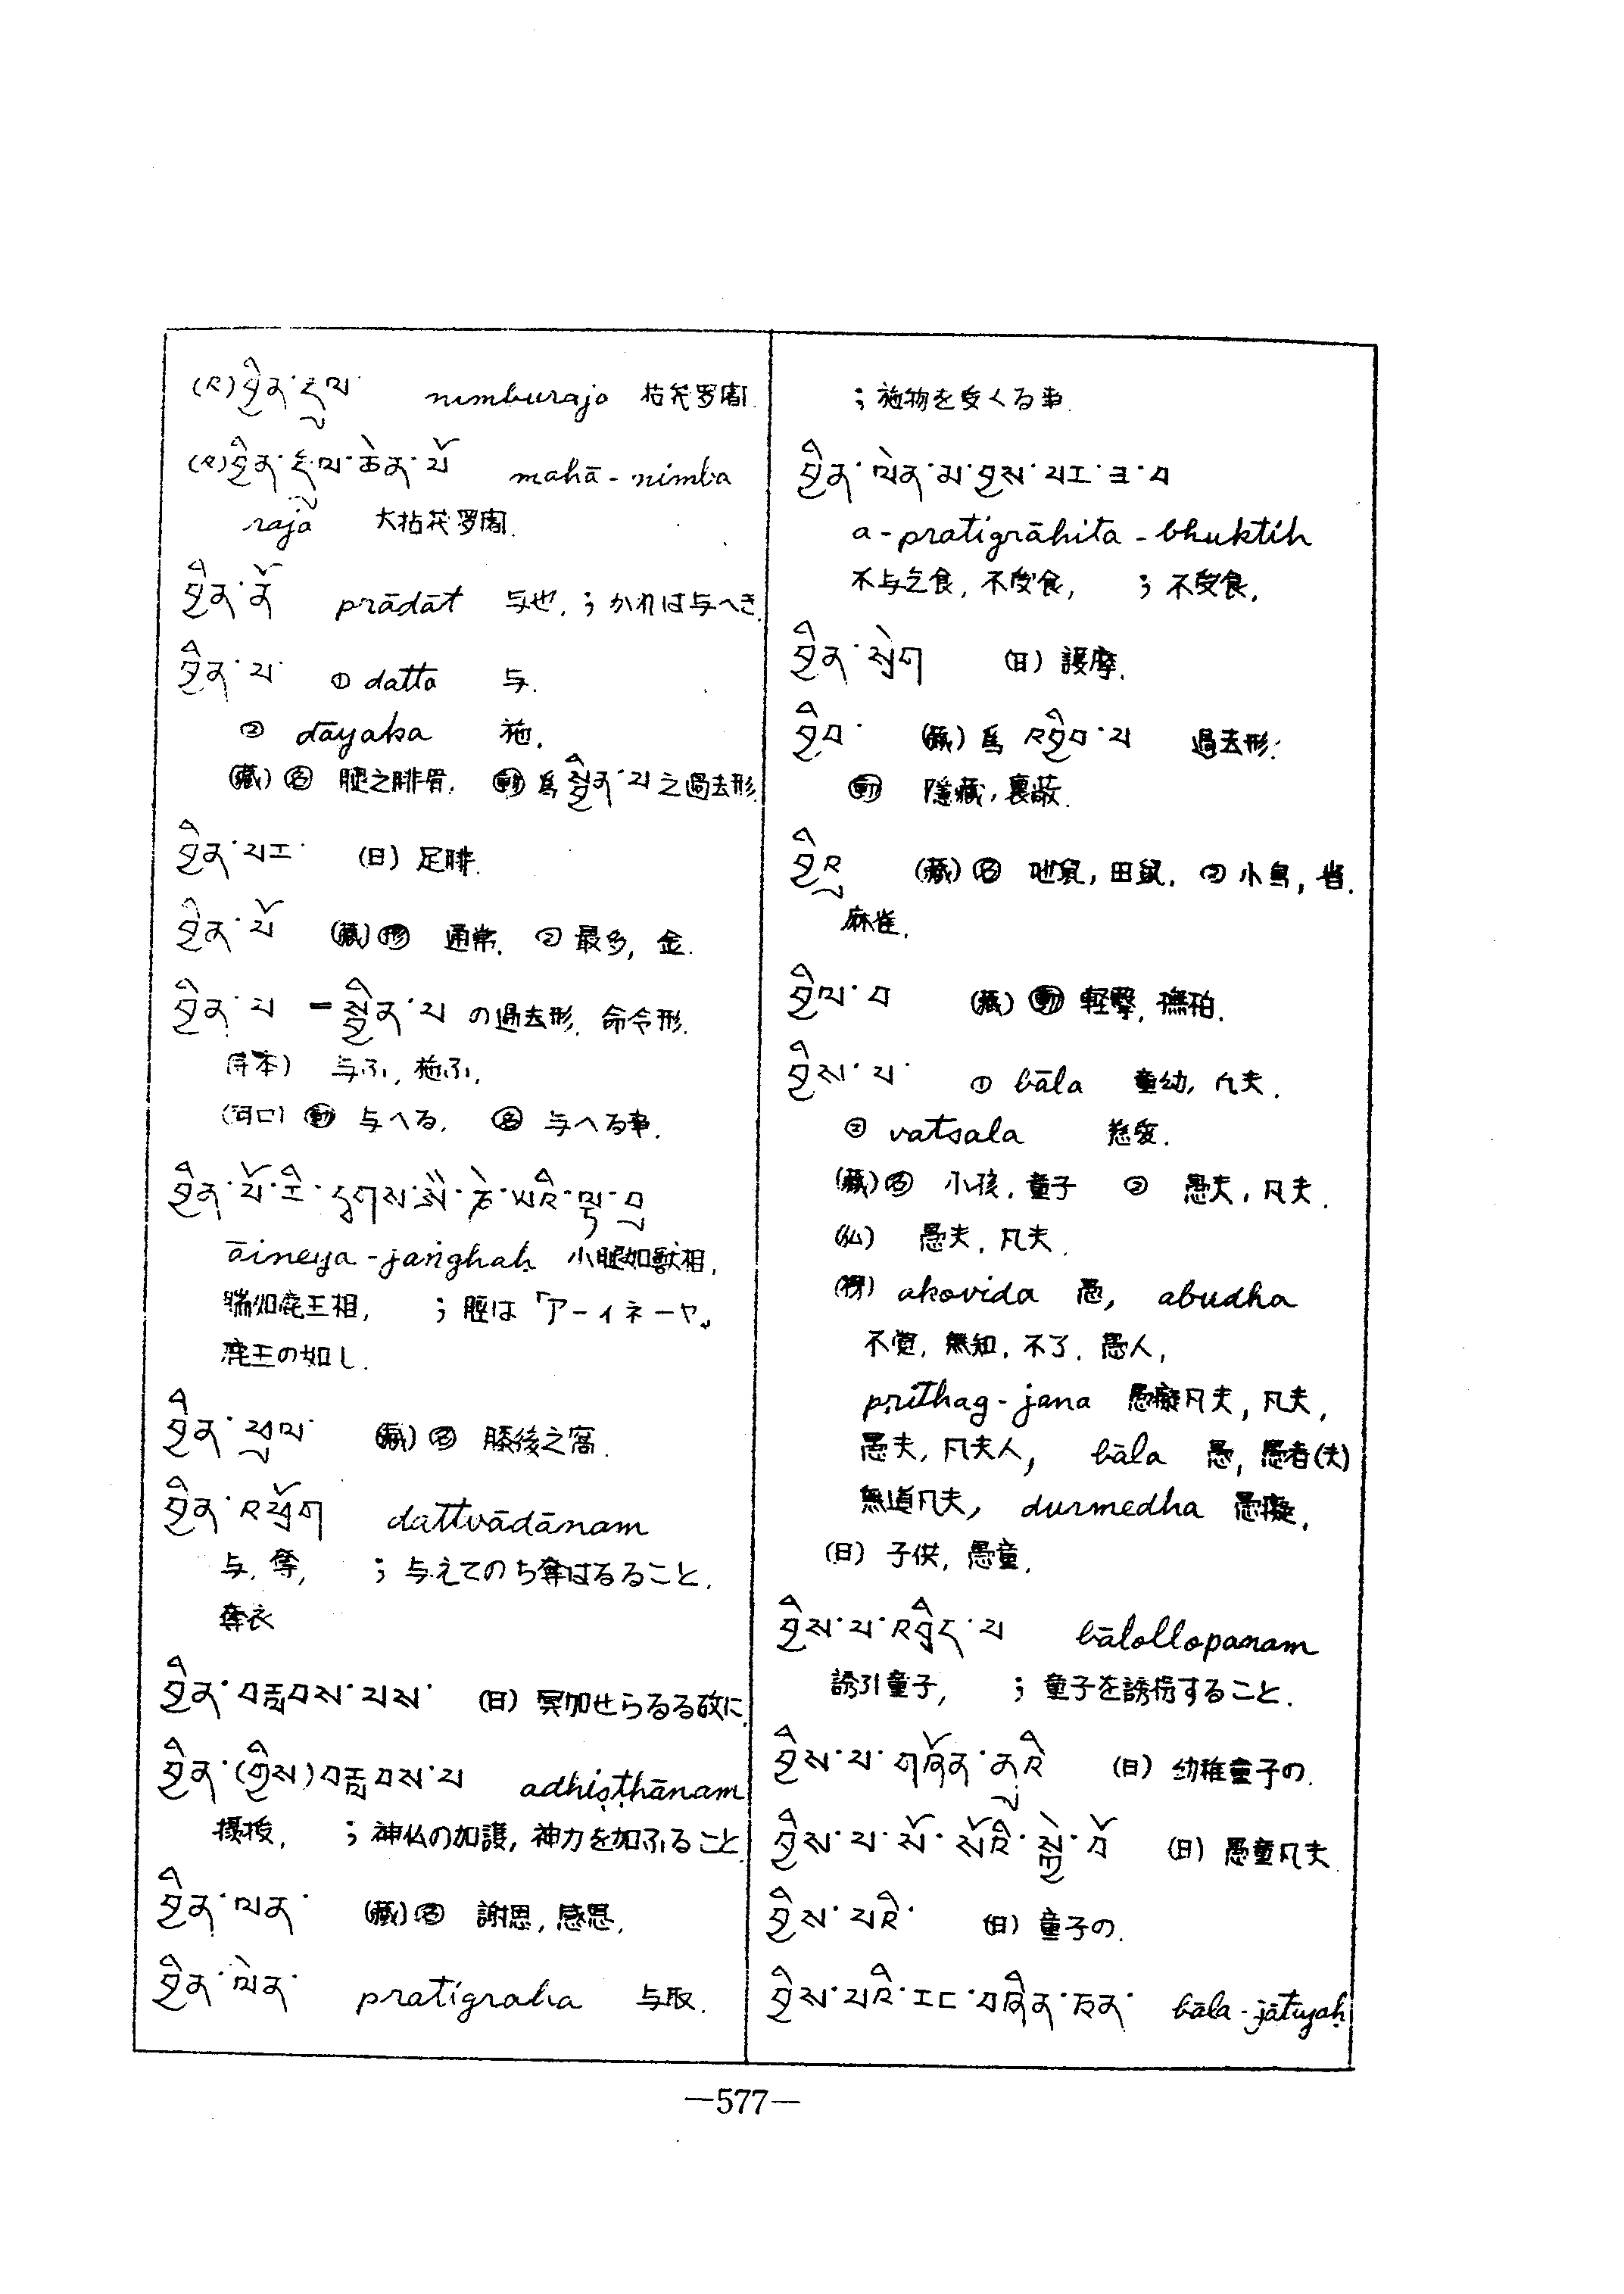 (འ)བྱིན་རྡུལ་ nimburajo 拈筏罗闍.
(འ)བྱིན་རྡུལ་ཆེན་པོ mahā-nimba
rajo 大拈筏罗闍.
བྱིན་ནོ prādāt 与也,；かれは与へき.
བྱིན་པ་ ① datta 与.
② dāyaka 施.
(藏)㊔ 腿之腓骨, 動 為 སྦྱིན་པ 之過去形
བྱིན་པར་ (日) 足腓.
བྱིན་པོ (藏) 形 通常. ② 最多, 全.
བྱིན་པ =སྦྱིན་པ の過去形. 命令形.
与ふ, 施ふ.
(河口) 動 与へる. 名 与へる事.
བྱིན་པོའི་
āineya-jaṅghaḥ 小腿如獸相,
腨如鹿王相, ；脛は「アーイネーヤ」
鹿王の如し.
བྱིན་ཕུལ་ (藏) 名 膝後之窩.
བྱིན་འཕྲོག dattvādānam
与, 奪, ；与えてのち奪はるること.
奪衣
བྱིན་བརླབས་པས་ (日) 冥加せらるる故に.
བྱིན་(གྱིས)བརླབས་པ adhiṣṭhānam
摂授, ；神仏の加護, 神力を加ふること.
བྱིན་ལན་ (藏) 名 謝恩, 感恩.
བྱིན་ལེན་ pratigraha 与取.
；施物を受くる事.
བྱིན་ལེན་མ་བྱས་པར་ཟ་བ
a-pratigrāhita-bhuktiḥ
不与乞食, 不受食, ；不受食.
བྱིན་སྲེག (日) 護摩.
བྱིབ་ (藏) 為 འབྱིབ་པ 過去形.
動 隱藏, 裏蔽.
བྱིའུ (藏) 名 地鼠, 田鼠. ② 小鳥, 雀.
麻雀.
བྱིལ་བ (藏) 動 軽撃, 撫拍.
བྱིས་པ་ ① bāla 童幼, 凡夫.
② vatsala 慈愛.
(藏) 名 小孩, 童子 ② 愚夫, 凡夫.
(仏) 愚夫, 凡夫.
(梵) akovida 愚, abudha
不覚, 無知, 不了, 愚人,
pṛithag-jana 愚癡凡夫, 凡夫,
愚夫, 凡夫人, bāla 愚, 愚者(夫)
無道凡夫, durmedha 愚癡.
(日) 子供, 愚童.
བྱིས་པ་འབྲིད་པ bālollopanam
誘引童子, ；童子を誘拐すること.
བྱིས་པ་གཞོན་ནུའི (日) 幼稚童子の.
བྱིས་པ་སོ་སོའི་སྐྱེ་བོ (日) 愚童凡夫
བྱིས་པའི་ (日) 童子の.
བྱིས་པའི་རང་བཞིན་ཅན་ bāla-jātīyaḥ
—577—